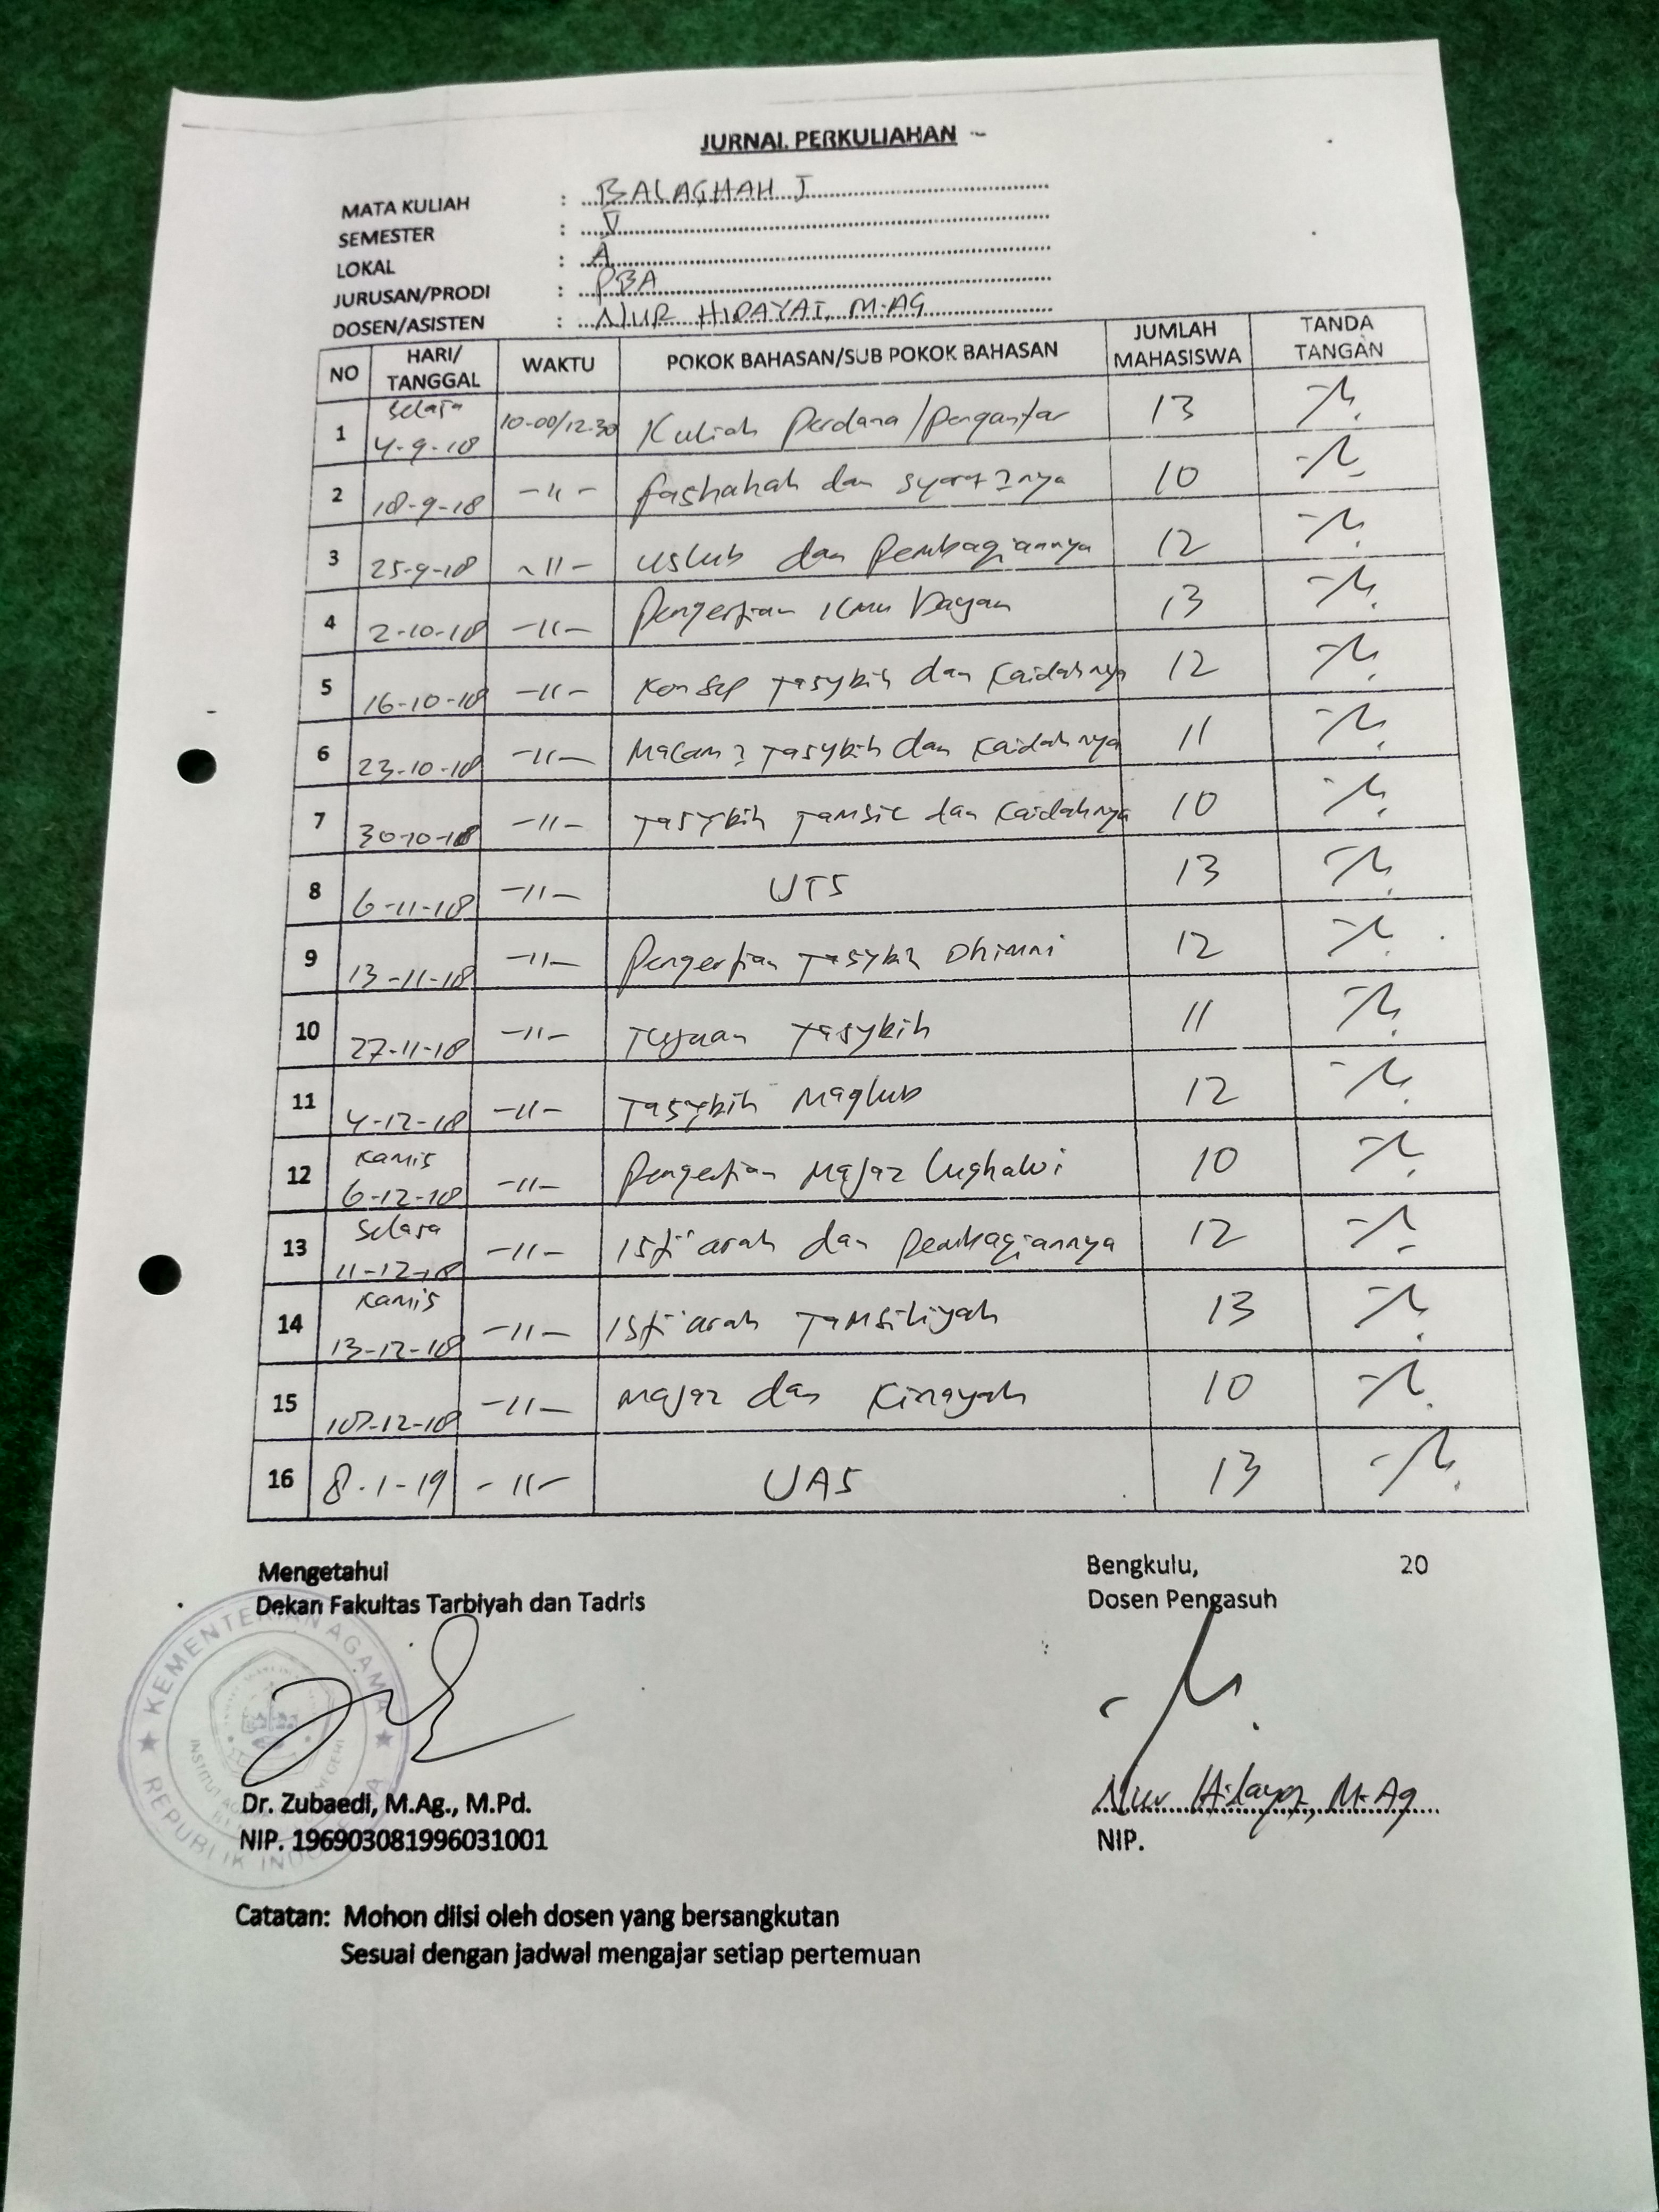 JURNAL PERKULIAHAN
MATA KULIAH : BALAGHAH I
SEMESTER : V
LOKAL : A
JURUSAN/PRODI : PBA
DOSEN/ASISTEN : NUR HIDAYAT, M.AG
NO HARI/TANGGAL WAKTU POKOK BAHASAN/SUB POKOK BAHASAN JUMLAH MAHASISWA TANDA TANGAN
1 Selasa 4-9-18 10-00/12-30 Kuliah Perdana/pengantar 13
2 18-9-18 -11- fashahah dan syarat2nya 10
3 25-9-18 -11- Uslub dan Pembagiannya 12
4 2-10-18 -11- Pengertian Ilmu Bayan 13
5 16-10-18 -11- Konsep Tasybih dan Kaidahnya 12
6 23-10-18 -11- Macam2 Tasybih dan Kaidahnya 11
7 30-10-18 -11- Tasybih Tamsil dan Kaidahnya 10
8 6-11-18 -11- UTS 13
9 13-11-18 -11- Pengertian Tasybih Dhimni 12
10 27-11-18 -11- Tujuan Tasybih 11
11 4-12-18 -11- Tasybih Maqlub 12
12 Kamis 6-12-18 -11- Pengertian Majaz Lughawi 10
13 Selasa 11-12-18 -11- Isti'arah dan Pembagiannya 12
14 Kamis 13-12-18 -11- Isti'arah Tamsiliyah 13
15 -11- Majaz dan Kinayah 10
16 8-1-19 -11- UAS 13
Mengetahui
Dekan Fakultas Tarbiyah dan Tadris
KEMENTERIAN AGAMA
REPUBLIK INDONESIA
Dr. Zubaedi, M.Ag., M.Pd.
NIP. 196903081996031001
Bengkulu, 20
Dosen Pengasuh
Nur Hidayat, M.Ag
NIP.
Catatan: Mohon diisi oleh dosen yang bersangkutan
Sesuai dengan jadwal mengajar setiap pertemuan